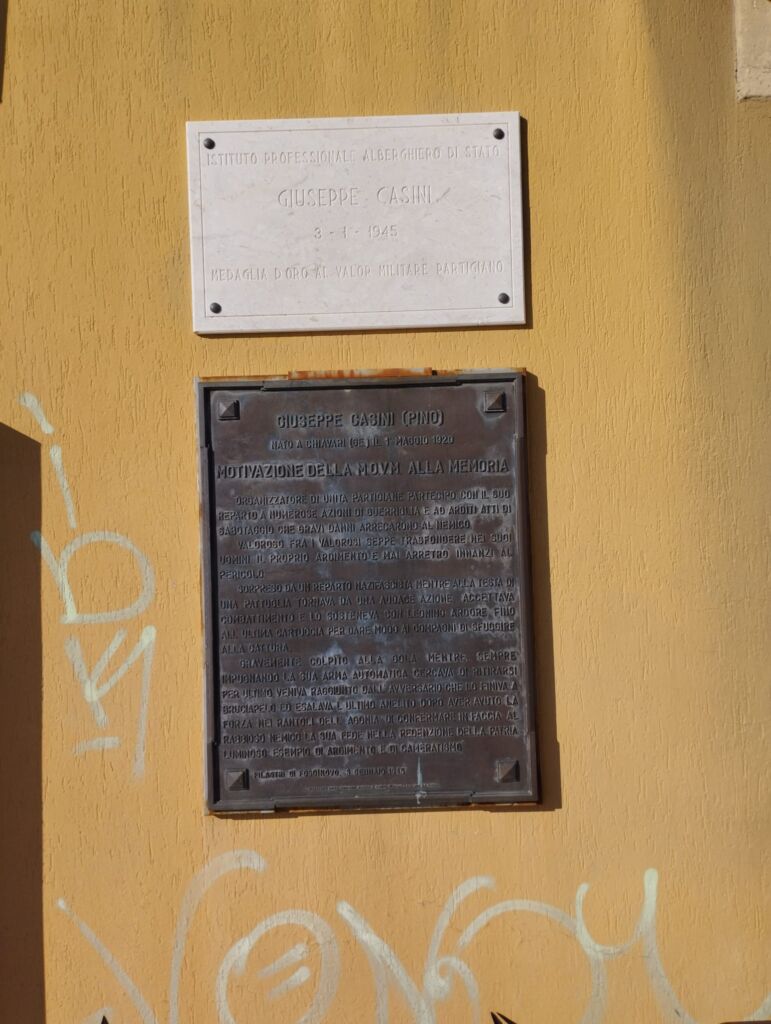 ISTITUTO PROFESSIONALE ALBERGHIERO DI STATO
GIUSEPPE CASINI
3 - 1 - 1945
MEDAGLIA D'ORO AL VALOR MILITARE PARTIGIANO
GIUSEPPE CASINI (PINO)
NATO A CHIAVARI (GE) IL 1 MAGGIO 1920
MOTIVAZIONE DELLA M.O.V.M. ALLA MEMORIA
ORGANIZZATORE DI UNITA PARTIGIANE PARTECIPO CON IL SUO
REPARTO A NUMEROSE AZIONI DI GUERRIGLIA E AD ARDITI ATTI DI
SABOTAGGIO CHE GRAVI DANNI ARRECARONO AL NEMICO.
VALOROSO FRA I VALOROSI SEPPE TRASFONDERE NEI SUOI
UOMINI IL PROPRIO ARDIMENTO E MAI ARRETRO INNANZI AL
PERICOLO.
SORPRESO DA UN REPARTO NAZIFASCISTA MENTRE ALLA TESTA DI
UNA PATTUGLIA TORNAVA DA UNA AUDACE AZIONE, ACCETTAVA
COMBATTIMENTO E LO SOSTENEVA CON LEONINO ARDORE, FINO
ALL'ULTIMA CARTUCCIA PER DARE MODO AI COMPAGNI DI SFUGGIRE
ALLA CATTURA.
GRAVEMENTE COLPITO ALLA GOLA MENTRE SEMPRE
IMPUGNANDO LA SUA ARMA AUTOMATICA CERCAVA DI RITIRARSI
PER ULTIMO VENIVA RAGGIUNTO DALL'AVVERSARIO CHE LO FINIVA A
BRUCIAPELO ED ESALAVA L'ULTIMO ANELITO DOPO AVER AVUTO LA
FORZA NEI RANTOLI DELL'AGONIA DI CONFERMARE IN FACCIA AL
RABBIOSO NEMICO LA SUA FEDE NELLA REDENZIONE DELLA PATRIA
LUMINOSO ESEMPIO DI ARDIMENTO E DI CAMERATISMO.
PILASTRI DI FOSDINOVO, 3 GENNAIO 1945